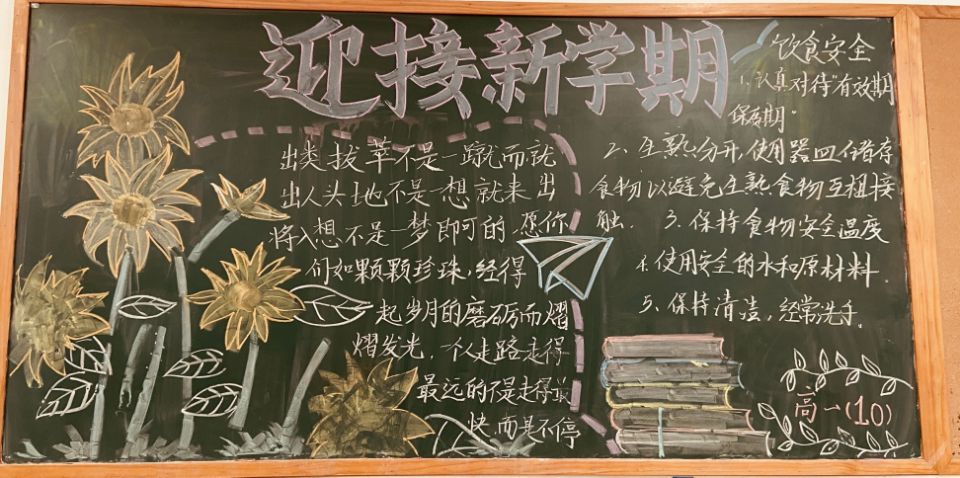 迎接新学期
出类拔萃不是一蹴而就
出人头地不是一想就来出
将入想不是一梦即可的,愿你
们如颗颗珍珠,经得
起岁月的磨砺而熠
熠发光.一个人走路走得
最远的不是走得最
快,而是不停
饮食安全
1.认真对待"有效期
保质期"
2.生熟分开,使用器皿储存
食物以避免生熟食物互相接
触. 3.保持食物安全温度
4.使用安全的水和原材料.
5.保持清洁,经常洗手。
高一(10)